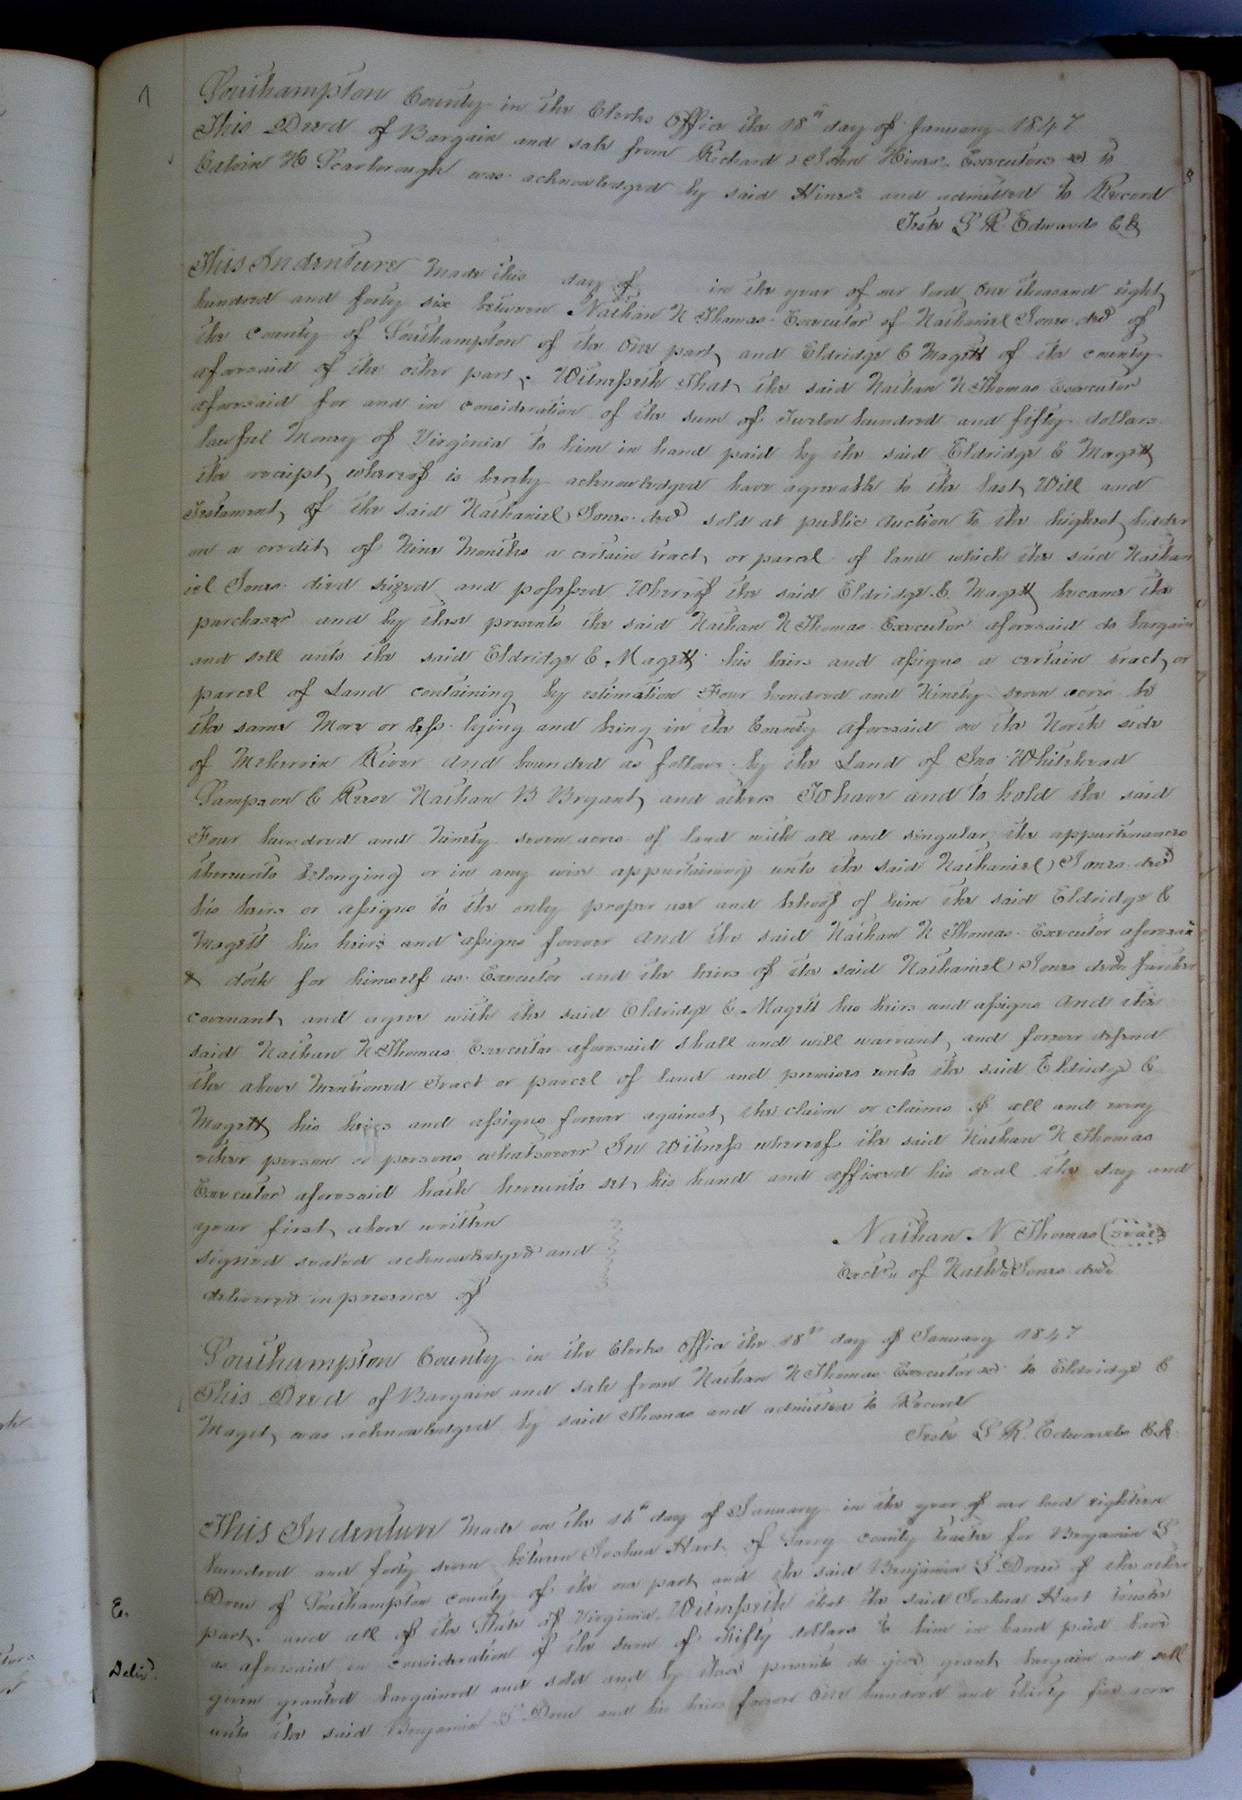 Southampton County in the Clerks Office the 18th day of January 1847
This Deed of Bargain and sale from Richard & John Hines Executors &c to
Calvin H Scarborough was acknowledged by said Hines and admitted to Record
Teste L R Edwards Clk
This Indenture Made this day of in the year of our lord One thousand eight
hundred and forty six between Nathan N Thomas Executor of Nathaniel Jones decd of
the County of Southampton of the One part and Eldridge C Magett of the county
aforesaid of the other part. Witnesseth That the said Nathan N Thomas Executor
aforesaid for and in consideration of the sum of Twelve hundred and fifty dollars
lawful Money of Virginia to him in hand paid by the said Eldridge C Magett
the receipt whereof is hereby acknowledged have agreeable to the last Will and
Testament of the said Nathaniel Jones decd sold at public Auction to the highest bidder
on a credit of Nine Months a certain tract or parcel of land which the said Nathan
iel Jones died seized and possessed Whereof the said Eldridge C Magett became the
purchaser and by these presents the said Nathan N Thomas Executor aforesaid do bargain
and sell unto the said Eldridge C Magett his heirs and assigns a certain tract or
parcel of Land containing by estimation Four hundred and Ninety seven acres be
the same More or less lying and being in the County aforesaid on the North side
of Meherrin River and bounded as follows by the Land of Jno Whitehead
Sampson C Reese Nathan B Bryant and others To have and to hold the said
Four hundred and Ninety seven acres of land with all and singular the appurtenances
thereunto belonging or in any wise appurtaining unto the said Nathaniel Jones decd
his heirs or assigns to the only proper use and behoof of him the said Eldridge C
Magett his heirs and assigns forever And the said Nathan N Thomas Executor aforesaid
& doth for himself as Executor and the heirs of the said Nathaniel Jones decd further
covenant and agree with the said Eldridge C Magett his heirs and assigns And the
said Nathan N Thomas Executor aforesaid shall and will warrant and forever defend
the above Mentioned Tract or parcel of land and premises unto the said Eldridge C
Magett his heirs and assigns forever against the claim or claims of all and every
other person or persons whatsoever In Witness whereof the said Nathan N Thomas
Executor aforesaid hath hereunto set his hand and affixed his seal the day and
year first above written
signed sealed acknowledged and
delivered in presence of
Nathan N Thomas (seal)
Exctr of Nathl Jones decd
Southampton County in the Clerks Office the 18th day of January 1847
This Deed of Bargain and sale from Nathan N Thomas Executor &c to Eldridge C
Maget was acknowledged by said Thomas and admitted to Record
Teste L R Edwards Clk
This Indenture Made on the 16th day of January in the year of our lord eighteen
hundred and forty seven between Joshua Hart of Surry county trustee for Benjamin S
Drew of Southampton county of the one part and the said Benjamin S Drew of the other
part. and all of the State of Virginia. Witnesseth that the said Joshua Hart trustee
as aforesaid in consideration of the sum of Fifty dollars to him in hand paid have
given granted bargained and sold and by these presents do give grant bargain and sell
unto the said Benjamin S Drew and his heirs forever One hundred and thirty five acres
E.
Delivd.